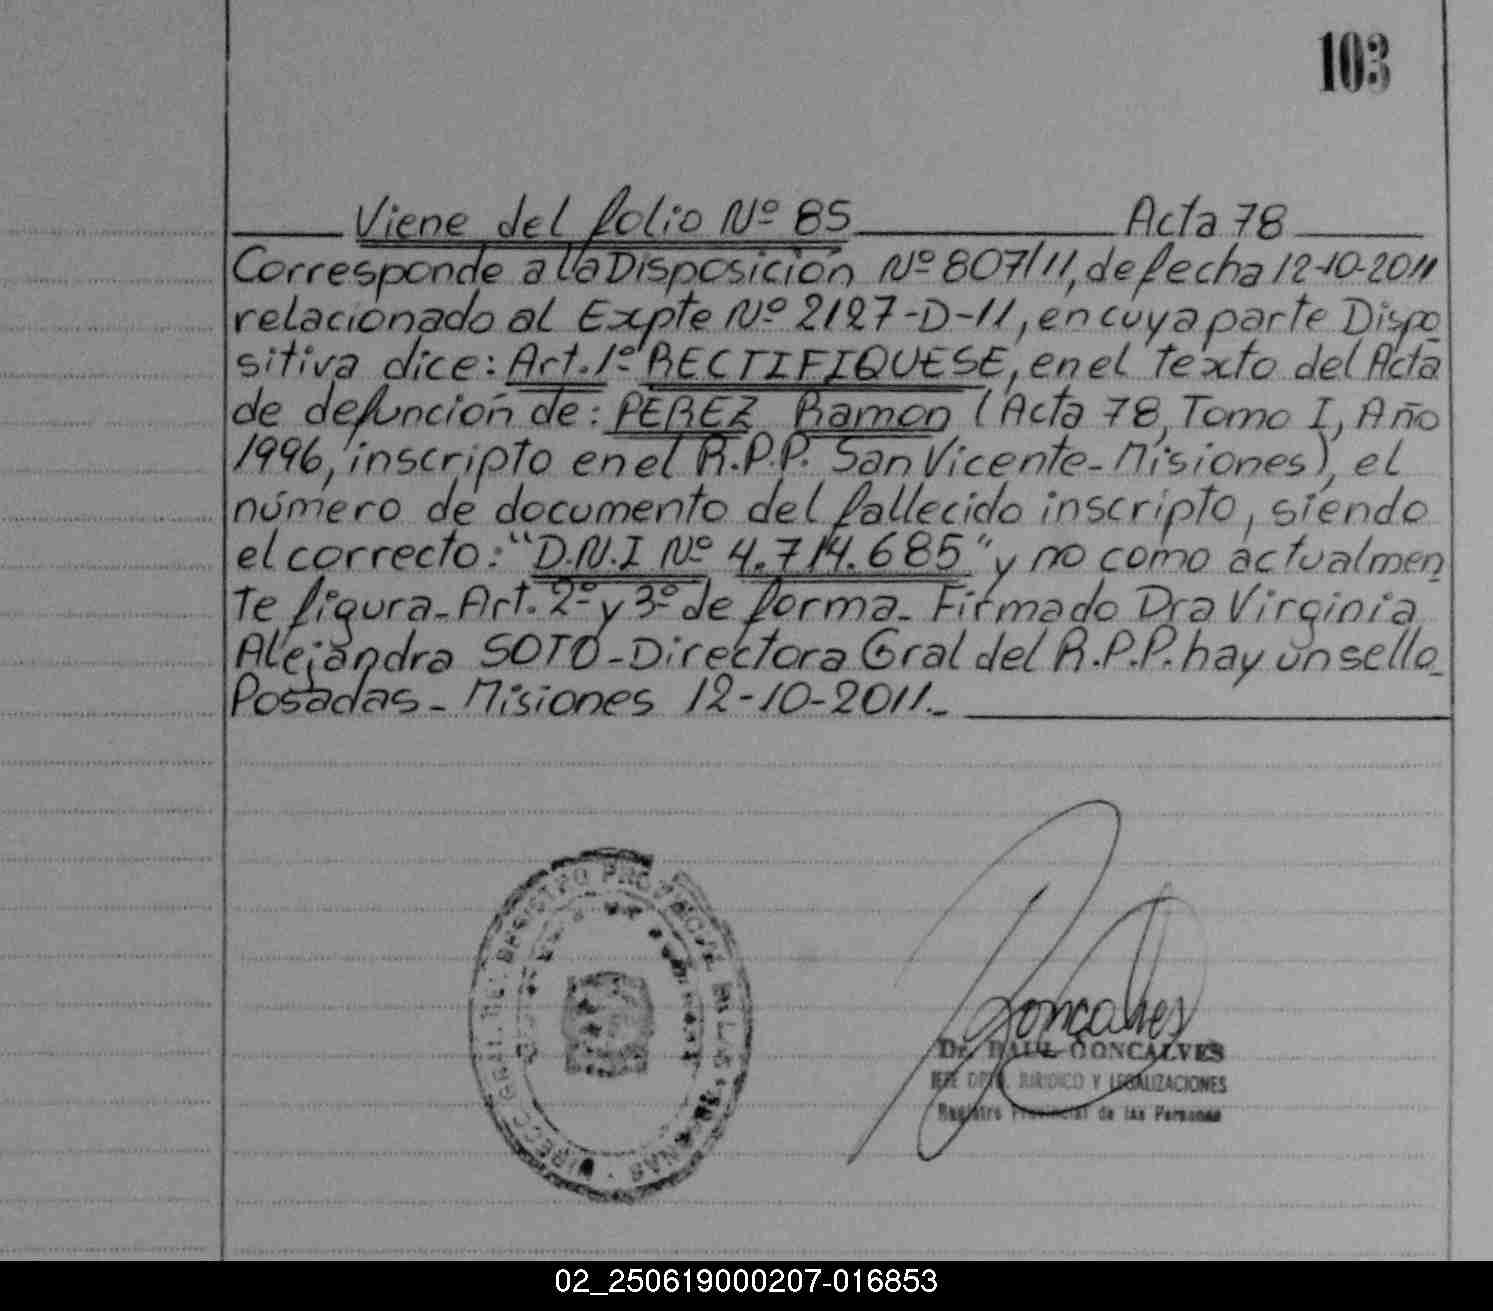 103
Viene del folio Nº 85 Acta 78
Corresponde a la Disposición Nº 807/11, de fecha 12-10-2011
relacionado al Expte Nº 2127-D-11, en cuya parte Dispo
sitiva dice: Art. 1º RECTIFIQUESE, en el texto del Acta
de defunción de: PEREZ Ramon (Acta 78, Tomo I, Año
1996, inscripto en el R.P.P. San Vicente-Misiones), el
número de documento del fallecido inscripto, siendo
el correcto: "D.N.I Nº 4.714.685" y no como actualmen
te figura_ Art. 2º y 3º de forma_ Firmado Dra Virginia
Alejandra SOTO-Directora Gral del R.P.P. hay un sello_
Posadas_ Misiones 12-10-2011._
DIRECC. GRAL. DEL REGISTRO PROVINCIAL DE LAS PERSONAS
Goncalves
Dr. RAUL GONCALVES
JEFE DPTO. JURIDICO Y LEGALIZACIONES
Registro Provincial de las Personas
02_250619000207-016853